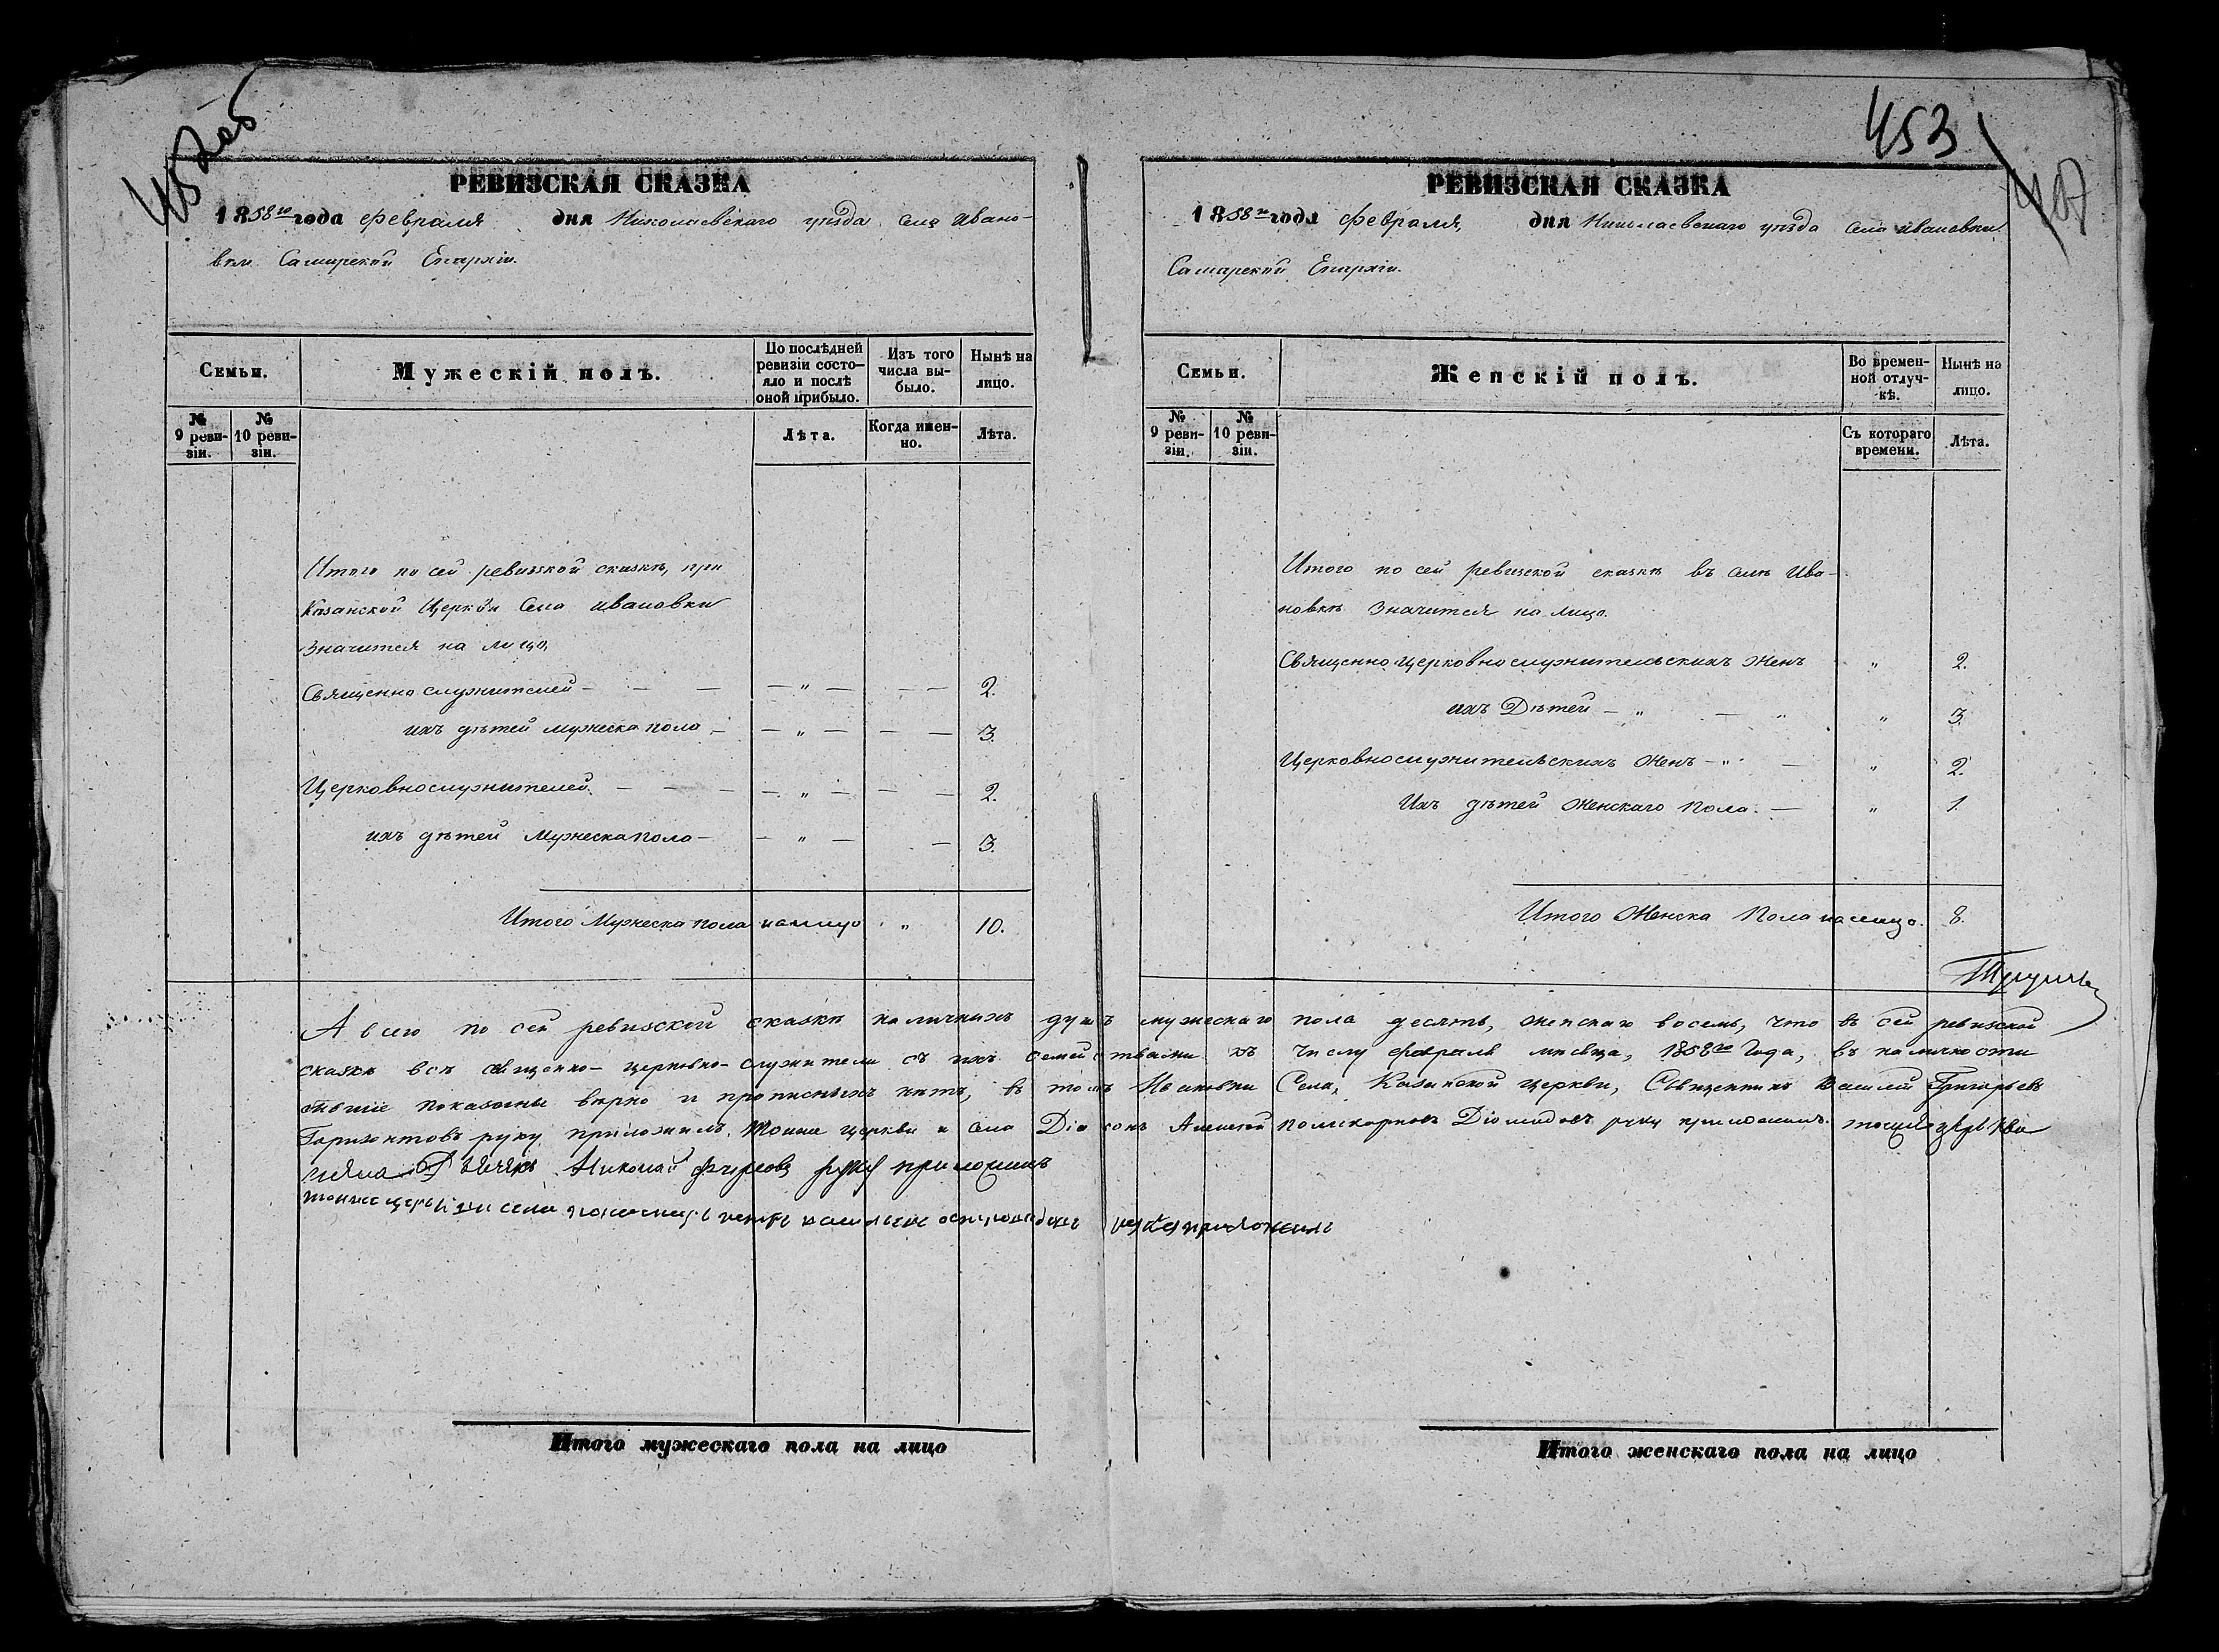 452об
РЕВИЗСКАЯ СКАЗКА
1858го года февраля дня Николаевскаго уѣзда села Ивано-
вки Самарской Епархіи.
Семьи.
Мужескій полъ.
По послѣдней ревизіи состо-яло и послѣ оной прибыло.
Изъ того числа вы-было.
Нынѣ на лицо.
№ 9 реви-зіи.
№ 10 реви-зіи.
Лѣта.
Когда имен-но.
Лѣта.
Итого по сей ревизской сказкѣ, при
Казанской Церкви Села Ивановки
значится на лицо,
Священно служителей — — — — " — — — 2.
ихъ дѣтей мужеска пола — — " — — — 3.
Церковнослужителей. — — — — " — — — 2.
ихъ дѣтей Мужеска пола — — " — — 3.
Итого Мужеска пола на лицо " 10.
453
РЕВИЗСКАЯ СКАЗКА
1858го года февраля, дня Николаевскаго уѣзда села Ивановки
Самарской Епархіи.
Семьи.
Женскій полъ.
Во времен-ной отлуч-кѣ.
Нынѣ на лицо.
№ 9 реви-зіи.
№ 10 реви-зіи.
Съ котораго времени.
Лѣта.
Итого по сей ревизской сказкѣ въ селѣ Ива-
новкѣ значится на лицо.
Священно церковно служительскихъ женъ " 2.
ихъ Дѣтей — " — " " 3.
Церковнослужительскихъ женъ — " — " 2.
Ихъ дѣтей женскаго пола. — " 1.
Итого Женска Пола на лицо. 8.
А всего по сей ревизской сказкѣ наличныхъ душъ мужескаго пола десять, женскаго восемь, что въ сей ревизской
сказкѣ всѣ священно- церковно- служители съ ихъ семействами къ числу февраля мѣсяца, 1858го Года, въ наличности
бывшіе показаны вѣрно и прописныхъ нѣтъ, въ томъ Ивановки Села, Казанской церкви, Священникъ Василій Григорьевъ
Горизонтовъ руку приложилъ. Тойже церкви и села Діаконъ Алексѣй Поликарповъ Діомидовъ руку приложилъ. тоцже церкви
исела Дьячекъ Николай руку приложилъ
тойже церкви и села пономарь руку приложилъ
Итого мужескаго пола на лицо
Итого женскаго пола на лицо